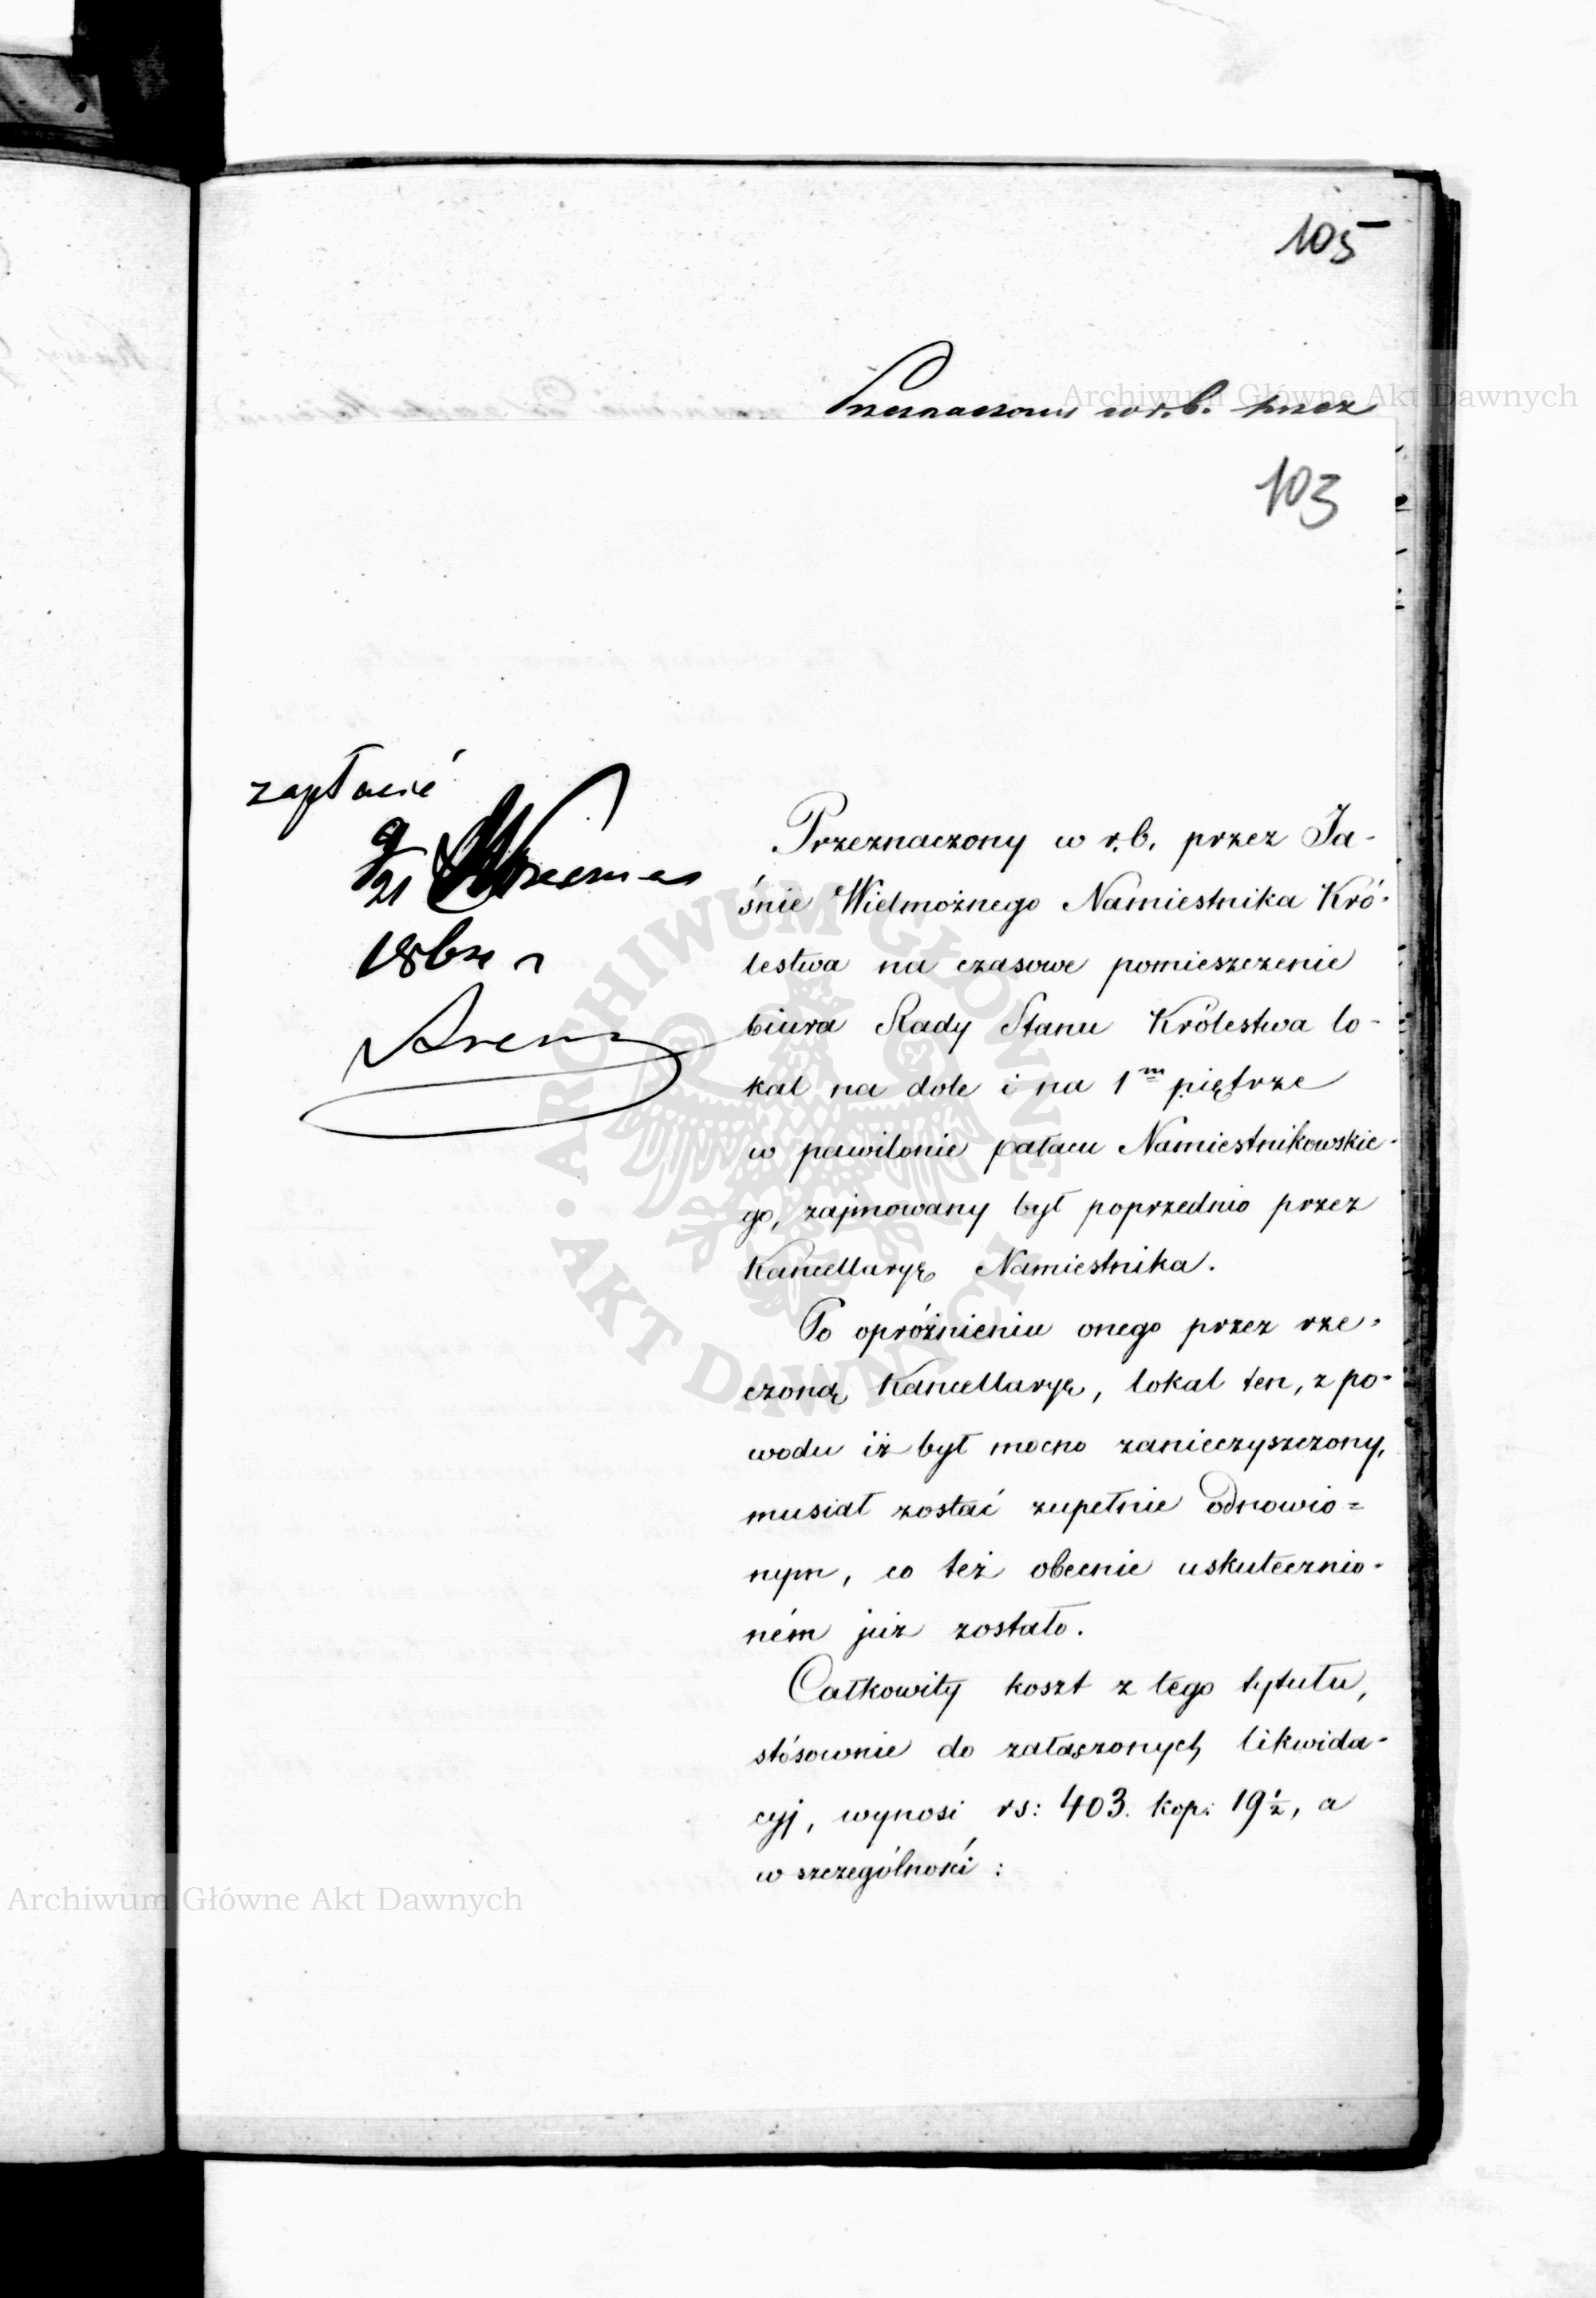 105
Przeznaczony w r. b. przez
103
zapłacić
9/21 Września
186 r
Arem
Przeznaczony w r. b. przez Ja-
śnie Wielmożnego Namiestnika Kró-
lestwa na czasowe pomieszczenie
biura Rady Stanu Królestwa lo-
kal na dole i na 1m piętrze
w pawilonie pałacu Namiestnikowskie-
go, zajmowany był poprzednio przez
Kancellaryę Namiestnika.
Po opróżnieniu onego przez rze-
czoną Kancellaryę, lokal ten, z po-
wodu iż był mocno zanieczyszczony,
musiał zostać zupełnie odnowio=
nym, co też obecnie uskutecznio-
ném już zostało.
Całkowity koszt z tego tytułu,
stósownie do załączonych likwida-
cyj, wynosi rs: 403. kop: 19½, a
w szczególności:
Archiwum Główne Akt Dawnych
Archiwum Główne Akt Dawnych
ARCHIWUM GŁÓWNE
• AKT DAWNYCH •